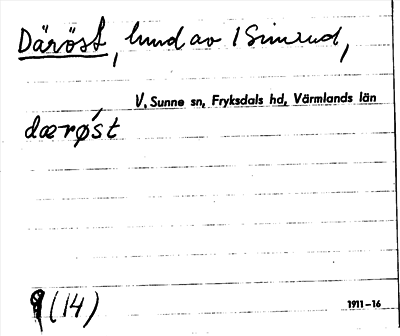 Däröst, lund av 1 Simrud,
V. Sunne sn, Fryksdals hd, Värmlands län
dærǿst
9 (14)
1911–16